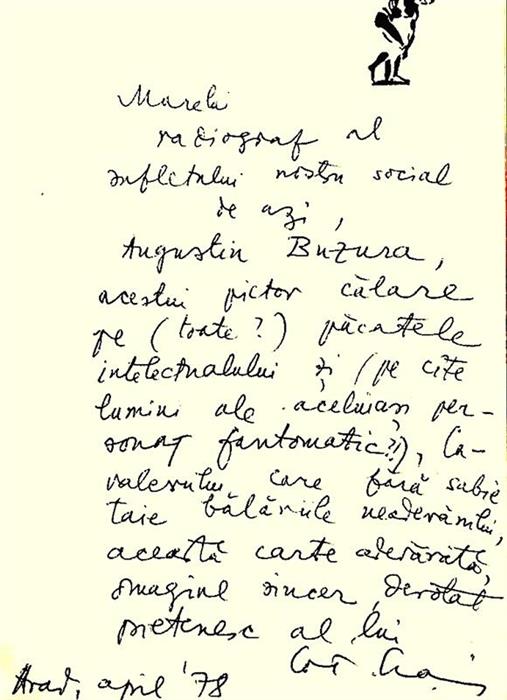 Marelui
radiograf al
sufletului nostru social
de azi,
Augustin Buzura,
acestui pictor călare
pe (toate?) păcatele
intelectualului și (pe cîte
lumini ale aceluiași per-
sonaj fantomatic?!), Ca-
valerului care fără sabie
taie bălăriile neadevărului,
această carte adevărată,
omagiul sincer, devotat
prietenesc al lui
Arad, april '78